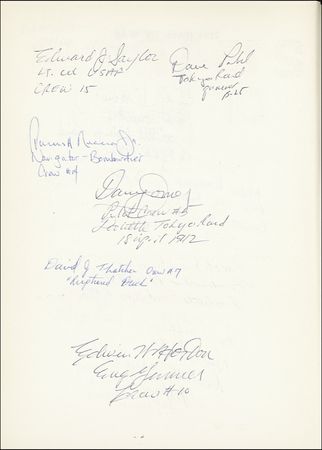 Edward J. Saylor
Lt. Col USAF
CREW 15
Dave Pohl
Tokyo Raid
gunner
B-25
Navigator - Bombardier
Crew #4
Davy Jones
Pilot Crew #5
Doolittle Tokyo Raid
18 April 1942
David J Thatcher Crew #7
"Ruptured Duck"
Edwin W Horton
Eng Gunner
Crew #10